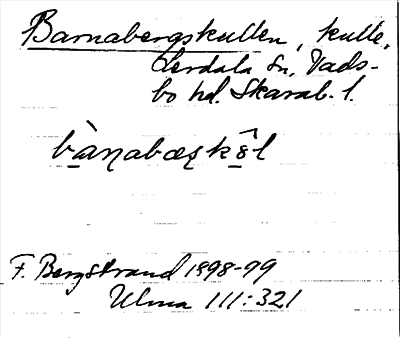 Barnabergskullen, kulle,
Lerdala sn, Vads-
bo hd. Skarab. l.
bànabæʂkôl
F. Bergstrand 1898-99
Ulma 111:321